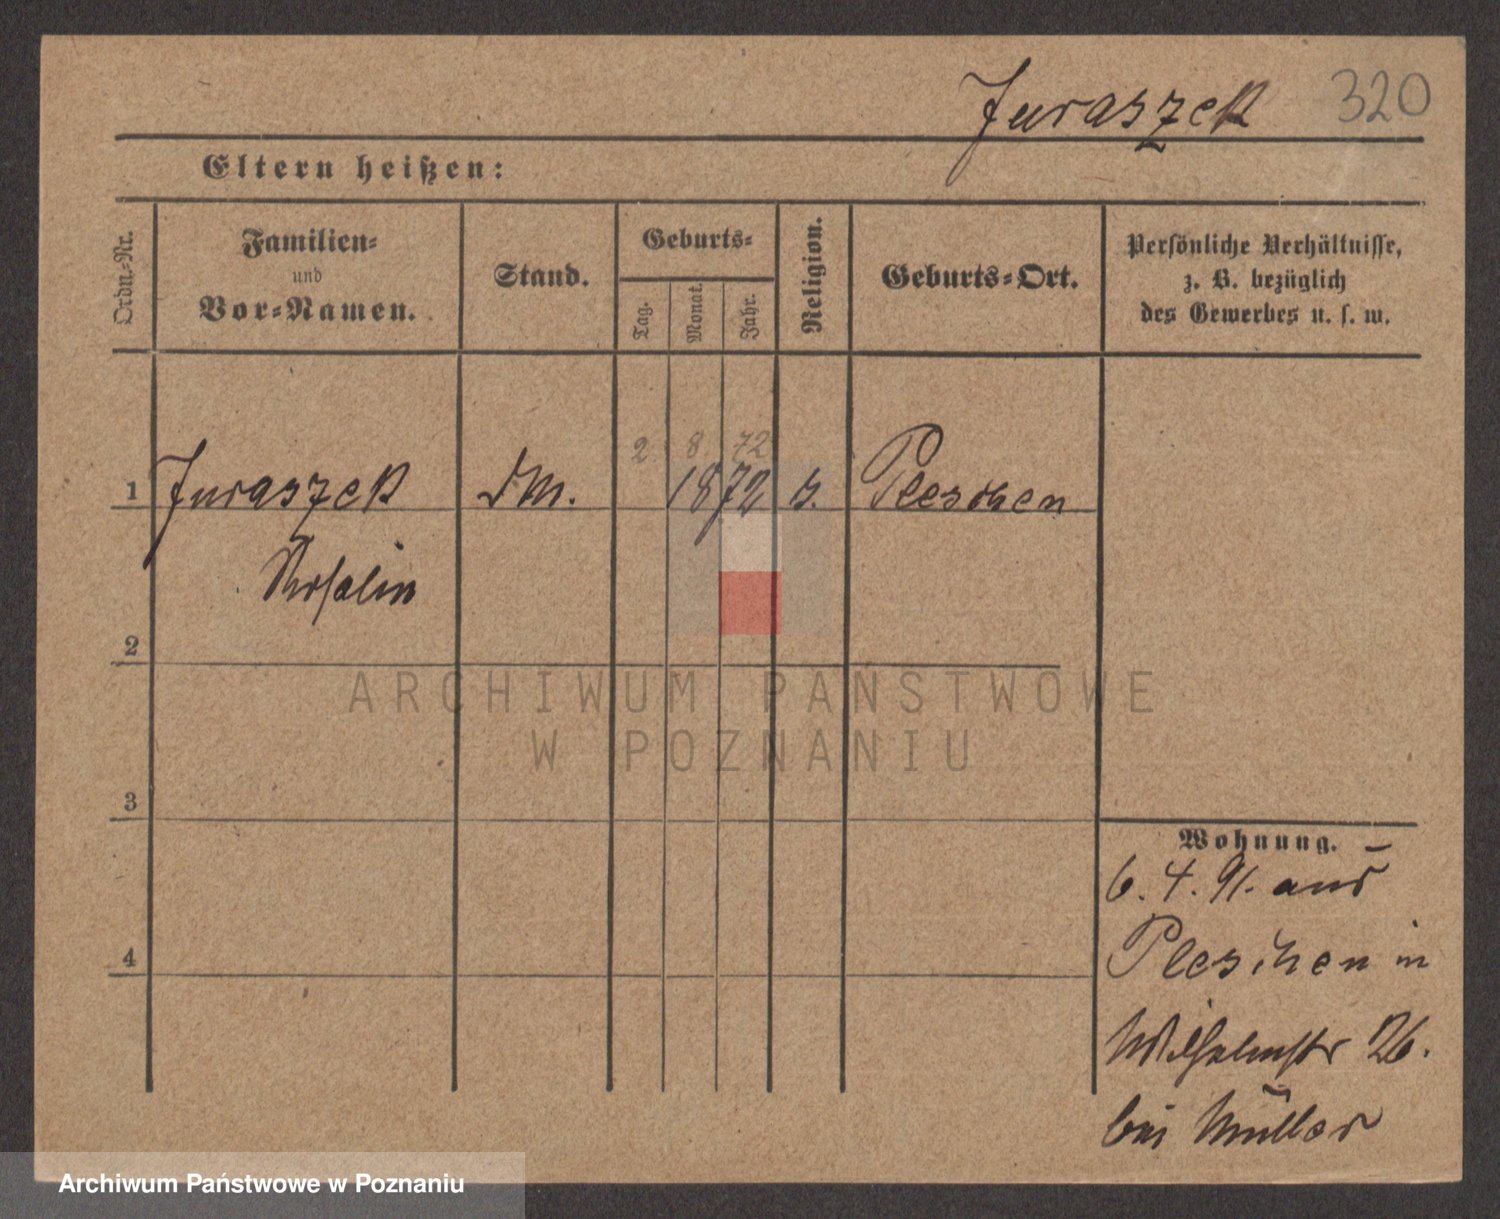 Juraszek 320
Eltern heißen:
Ordn.-Nr.
Familien-
und
Vor-Namen.
Stand.
Geburts-
Tag.
Monat.
Jahr.
Religion.
Geburts-Ort.
Persönliche Verhältnisse,
z. B. bezüglich
des Gewerbes u. s. w.
2. 8. 72
1 Juraszek DM. 1872 Pleschen
Rosalin
2
ARCHIWUM PAŃSTWOWE
W POZNANIU
3
4
Wohnung.
6. 4. 91. aus
Pleschen in
Wilhelmstr 26.
bei Müller
Archiwum Państwowe w Poznaniu